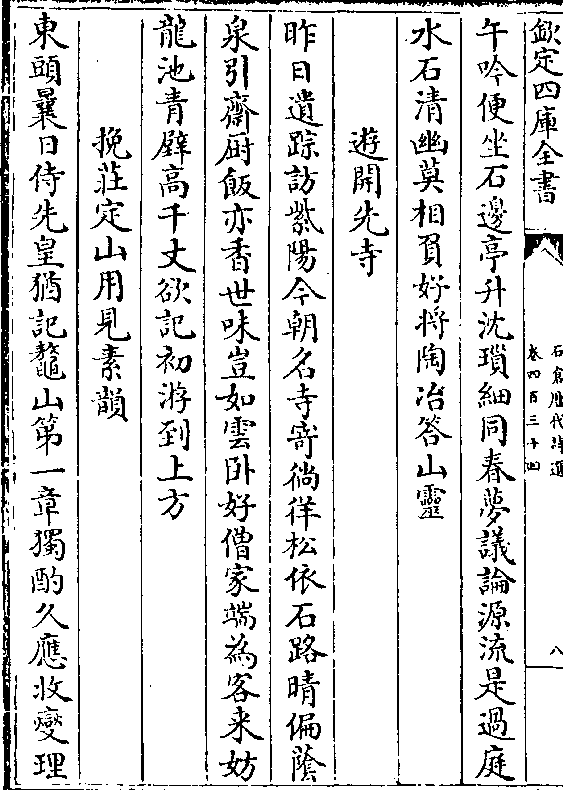 欽定四庫全書
石倉歷代詩選
卷四百三十四
八
午吟便坐石邊亭升沈瑣細同春夢議論源流是過庭
水石清幽莫相負好將陶冶答山靈
遊開先寺
昨日遺踪訪紫陽今朝名寺寄徜徉松依石路晴偏蔭
泉引齋厨飯亦香世味豈如雲卧好僧家端為客来妨
龍池青壁高千丈欲記初游到上方
挽莊定山用見素韻
東頭曩日侍先皇猶記鰲山第一章獨酌久應收燮理